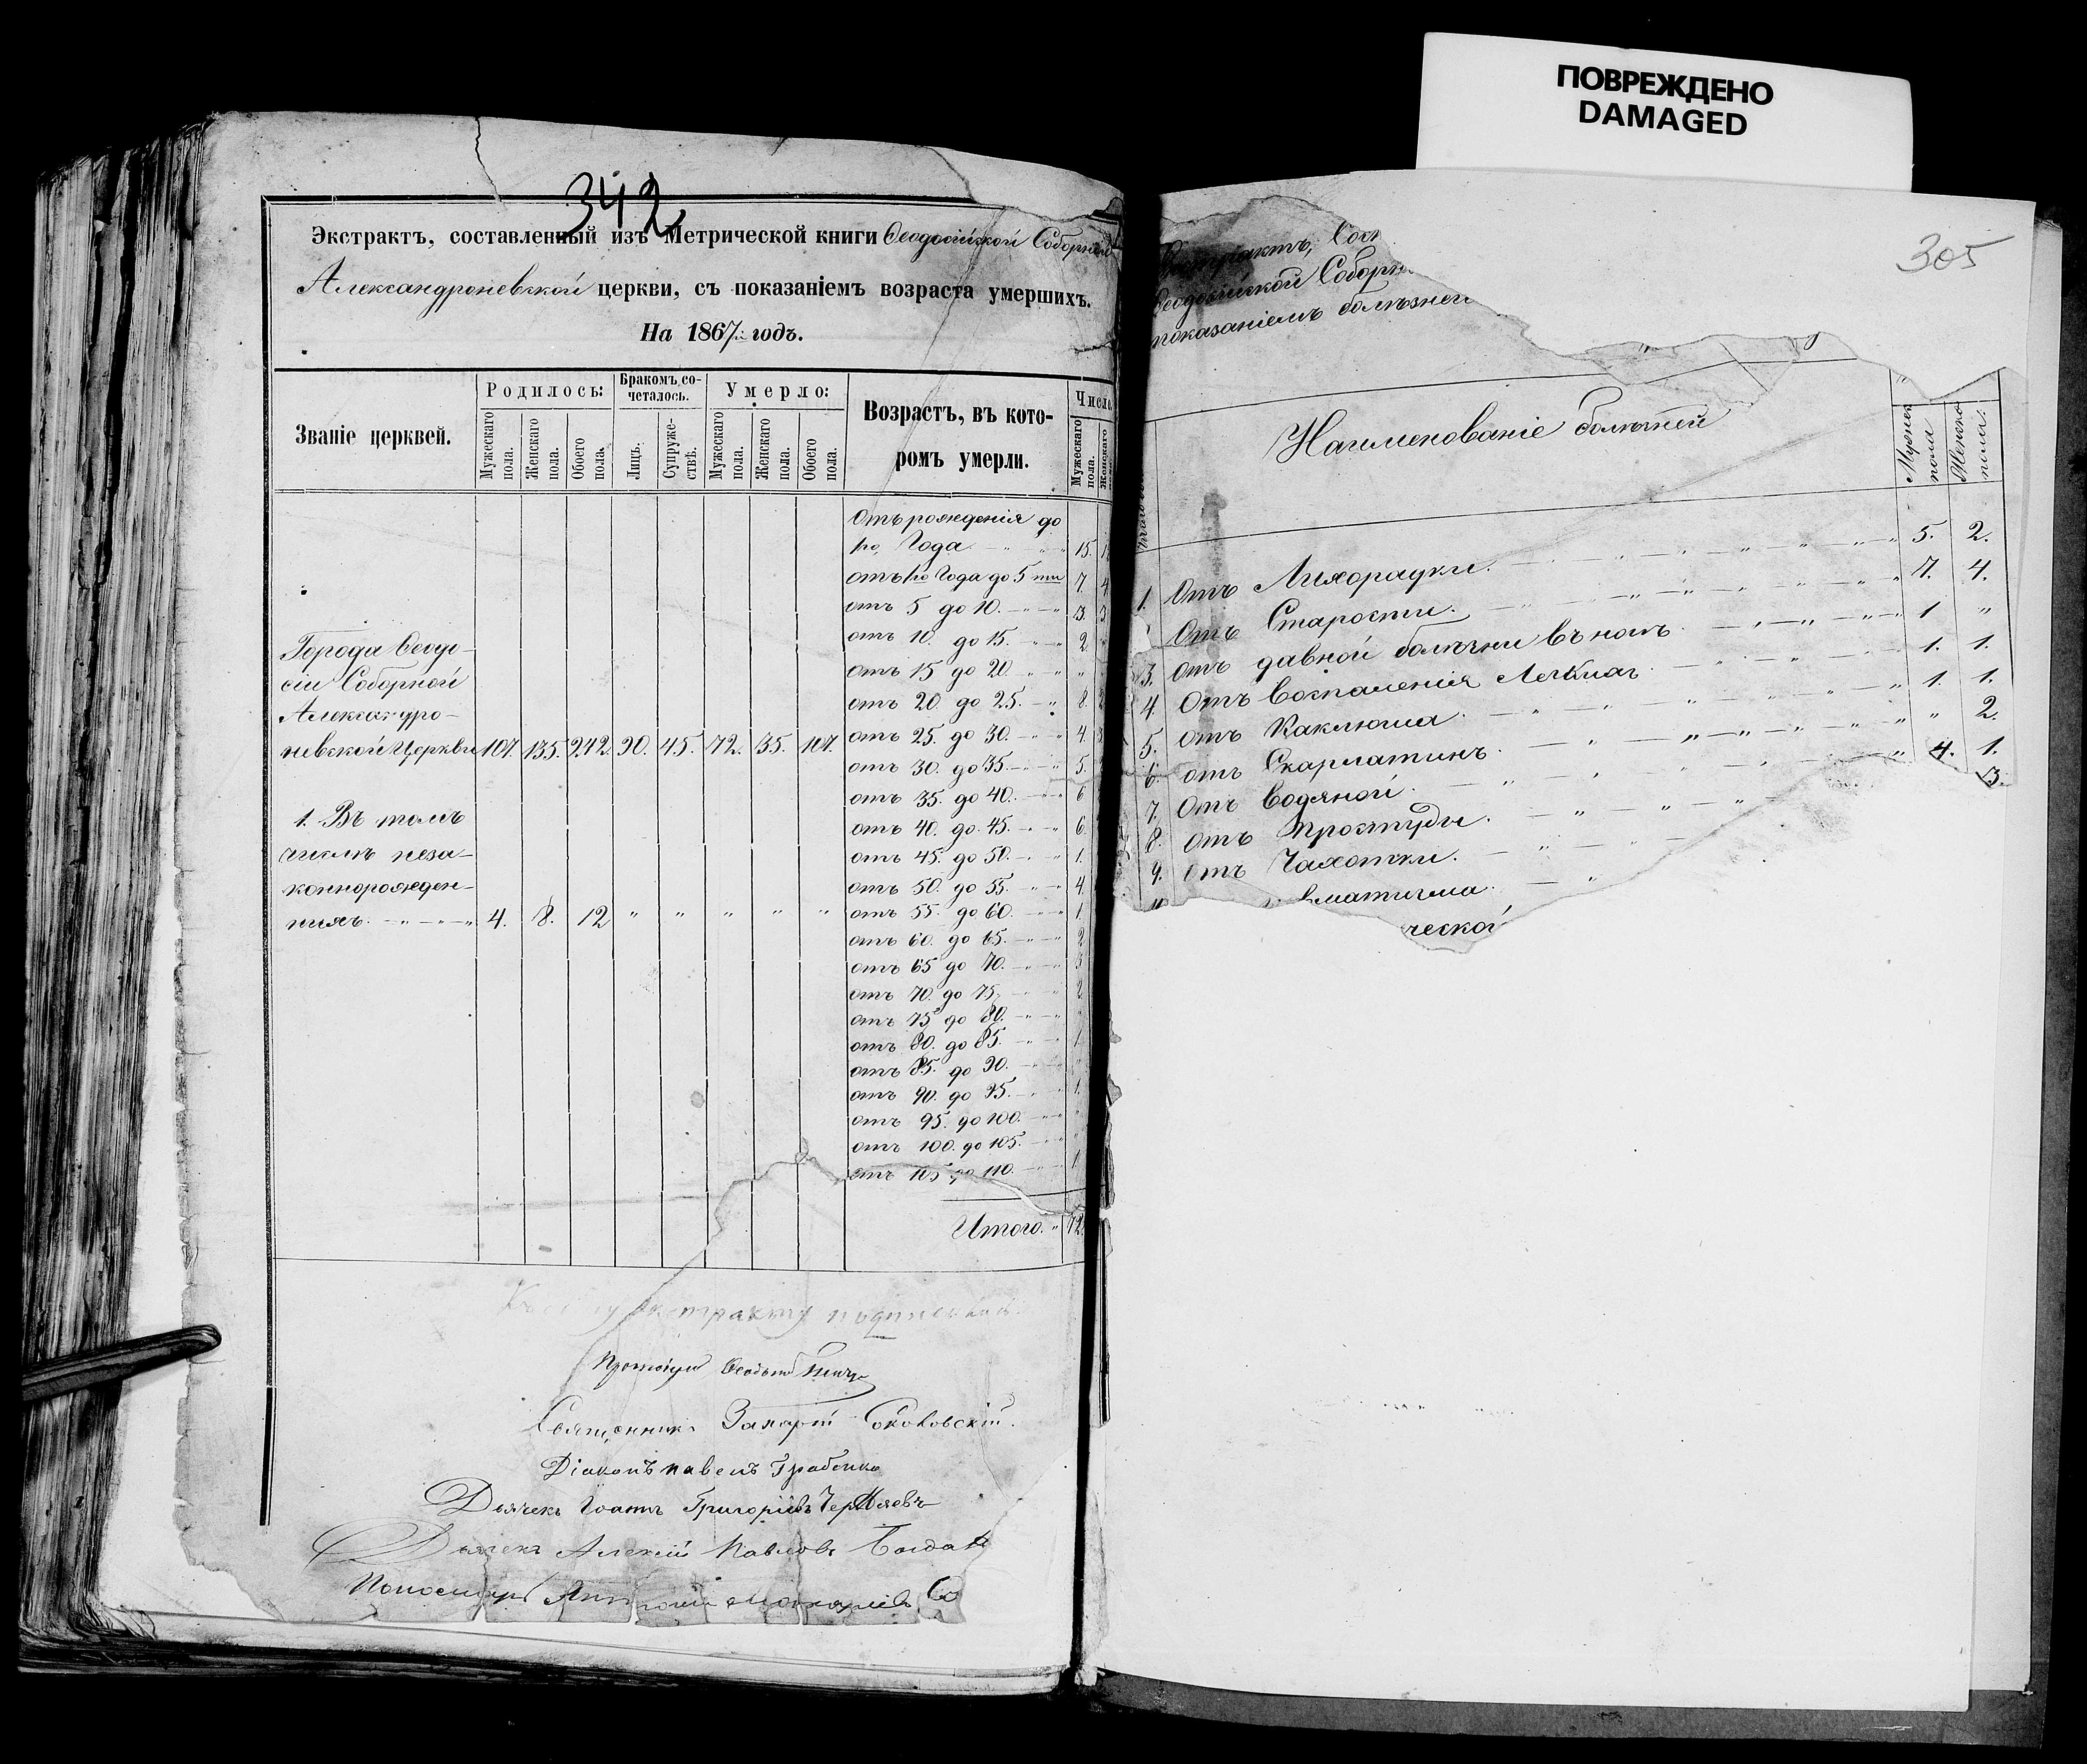 ПОВРЕЖДЕНО
DAMAGED
342
Экстрактъ, составленный изъ Метрической книги Ѳеодосійской Соборной
Александроневской церкви, съ показаніемъ возраста умершихъ.
На 1867й годъ.
Званіе церквей.
Родилось:
Мужескаго пола.
Женскаго пола.
Обоего пола.
Бракомъ со-
четалось.
Лицъ.
Супруже-
ствъ.
Умерло:
Мужескаго пола.
Женскаго пола.
Обоего пола.
Возрастъ, въ кото-
ромъ умерли.
Число
Мужескаго пола.
Женскаго
Города Ѳеодо-
сіи Соборной
Александро-
невской Церкви 107. 135. 242. 90. 45. 72. 35. 107.
1. Въ томъ
числѣ неза-
коннорожден-
ныхъ. 4. 8. 12 " " " " "
Отъ рожденія до
1го Года 15.
отъ 1го Года до 5ти 7. 4
отъ 5 до 10. 3. 3
отъ 10. до 15. 2
отъ 15 до 20. "
отъ 20. до 25. 8. 2
отъ 25. до 30. 4. 3
отъ 30. до 35. 5.
отъ 35. до 40. 6
отъ 40. до 45. 6.
отъ 45. до 50. 1.
отъ 50. до 55. 4.
отъ 55. до 60. 1.
отъ 60. до 65. 2
отъ 65 до 70. 3
отъ 70. до 75. 2
отъ 75 до 80. "
отъ 80. до 85. 1.
отъ 85. до 90. "
отъ 90. до 95. 1.
отъ 95. до 100. "
отъ 100. до 105. "
отъ 105 до 110. 1.
Итого. 72.
Къ сему экстракту подписались:
Священникъ Захарій
Діаконъ Павелъ Грабенко
Дьячекъ Іоаннъ Григоріевъ
Дьячекъ Алексій Павловъ
Пономарь
305
Экстрактъ, Сост
Ѳеодосійской Соборн
показаніемъ болѣзней
Наименованіе болѣзней
Мужеск пола
Женско пола.
1. Отъ Лихорадки. 5. 2.
Отъ Старости. 7. 4.
3. отъ давной болѣзни въ ногѣ 1 "
4. Отъ воспаленія Легкихъ 1. 1.
5. отъ Каклюша. 1. 1.
6. отъ Скарлатинѣ. " 2.
7. Отъ водяной. 4. 1.
8. отъ Простуды. 3.
9. Отъ Чахотки.
вматизма.
ческой